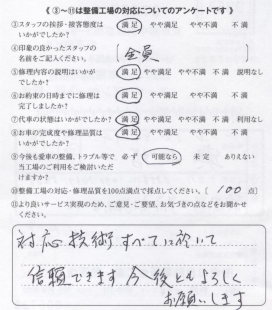 《 ③～⑪は整備工場の対応についてのアンケートです 》
③スタッフの挨拶・接客態度は 満 足 やや満足 やや不満 不 満
いかがでしたか?
④印象の良かったスタッフの
名前をご記入ください。 〔 全員
⑤修理内容の説明はいかが 満 足 やや満足 やや不満 不 満 説明なし
でしたか?
⑥お約束の日時までに修理は 満 足 やや満足 やや不満 不 満
完了しましたか?
⑦代車の状態はいかがでしたか? 満 足 やや満足 やや不満 不 満 利用なし
⑧お車の完成度や修理品質は 満 足 やや満足 やや不満 不 満
いかがでしたか?
⑨今後も愛車の整備、トラブル等で 必 ず 可能なら 未 定 ありえない
当工場のご利用をご検討いただ
けますか?
⑩整備工場の対応・修理品質を100点満点で採点してください。〔 100 点〕
⑪より良いサービス実現のため、ご意見・ご要望、お気づきの点などをお聞かせ
ください。
対応 技術 すべてに於いて
信頼できます 今後ともよろしく
お願いします